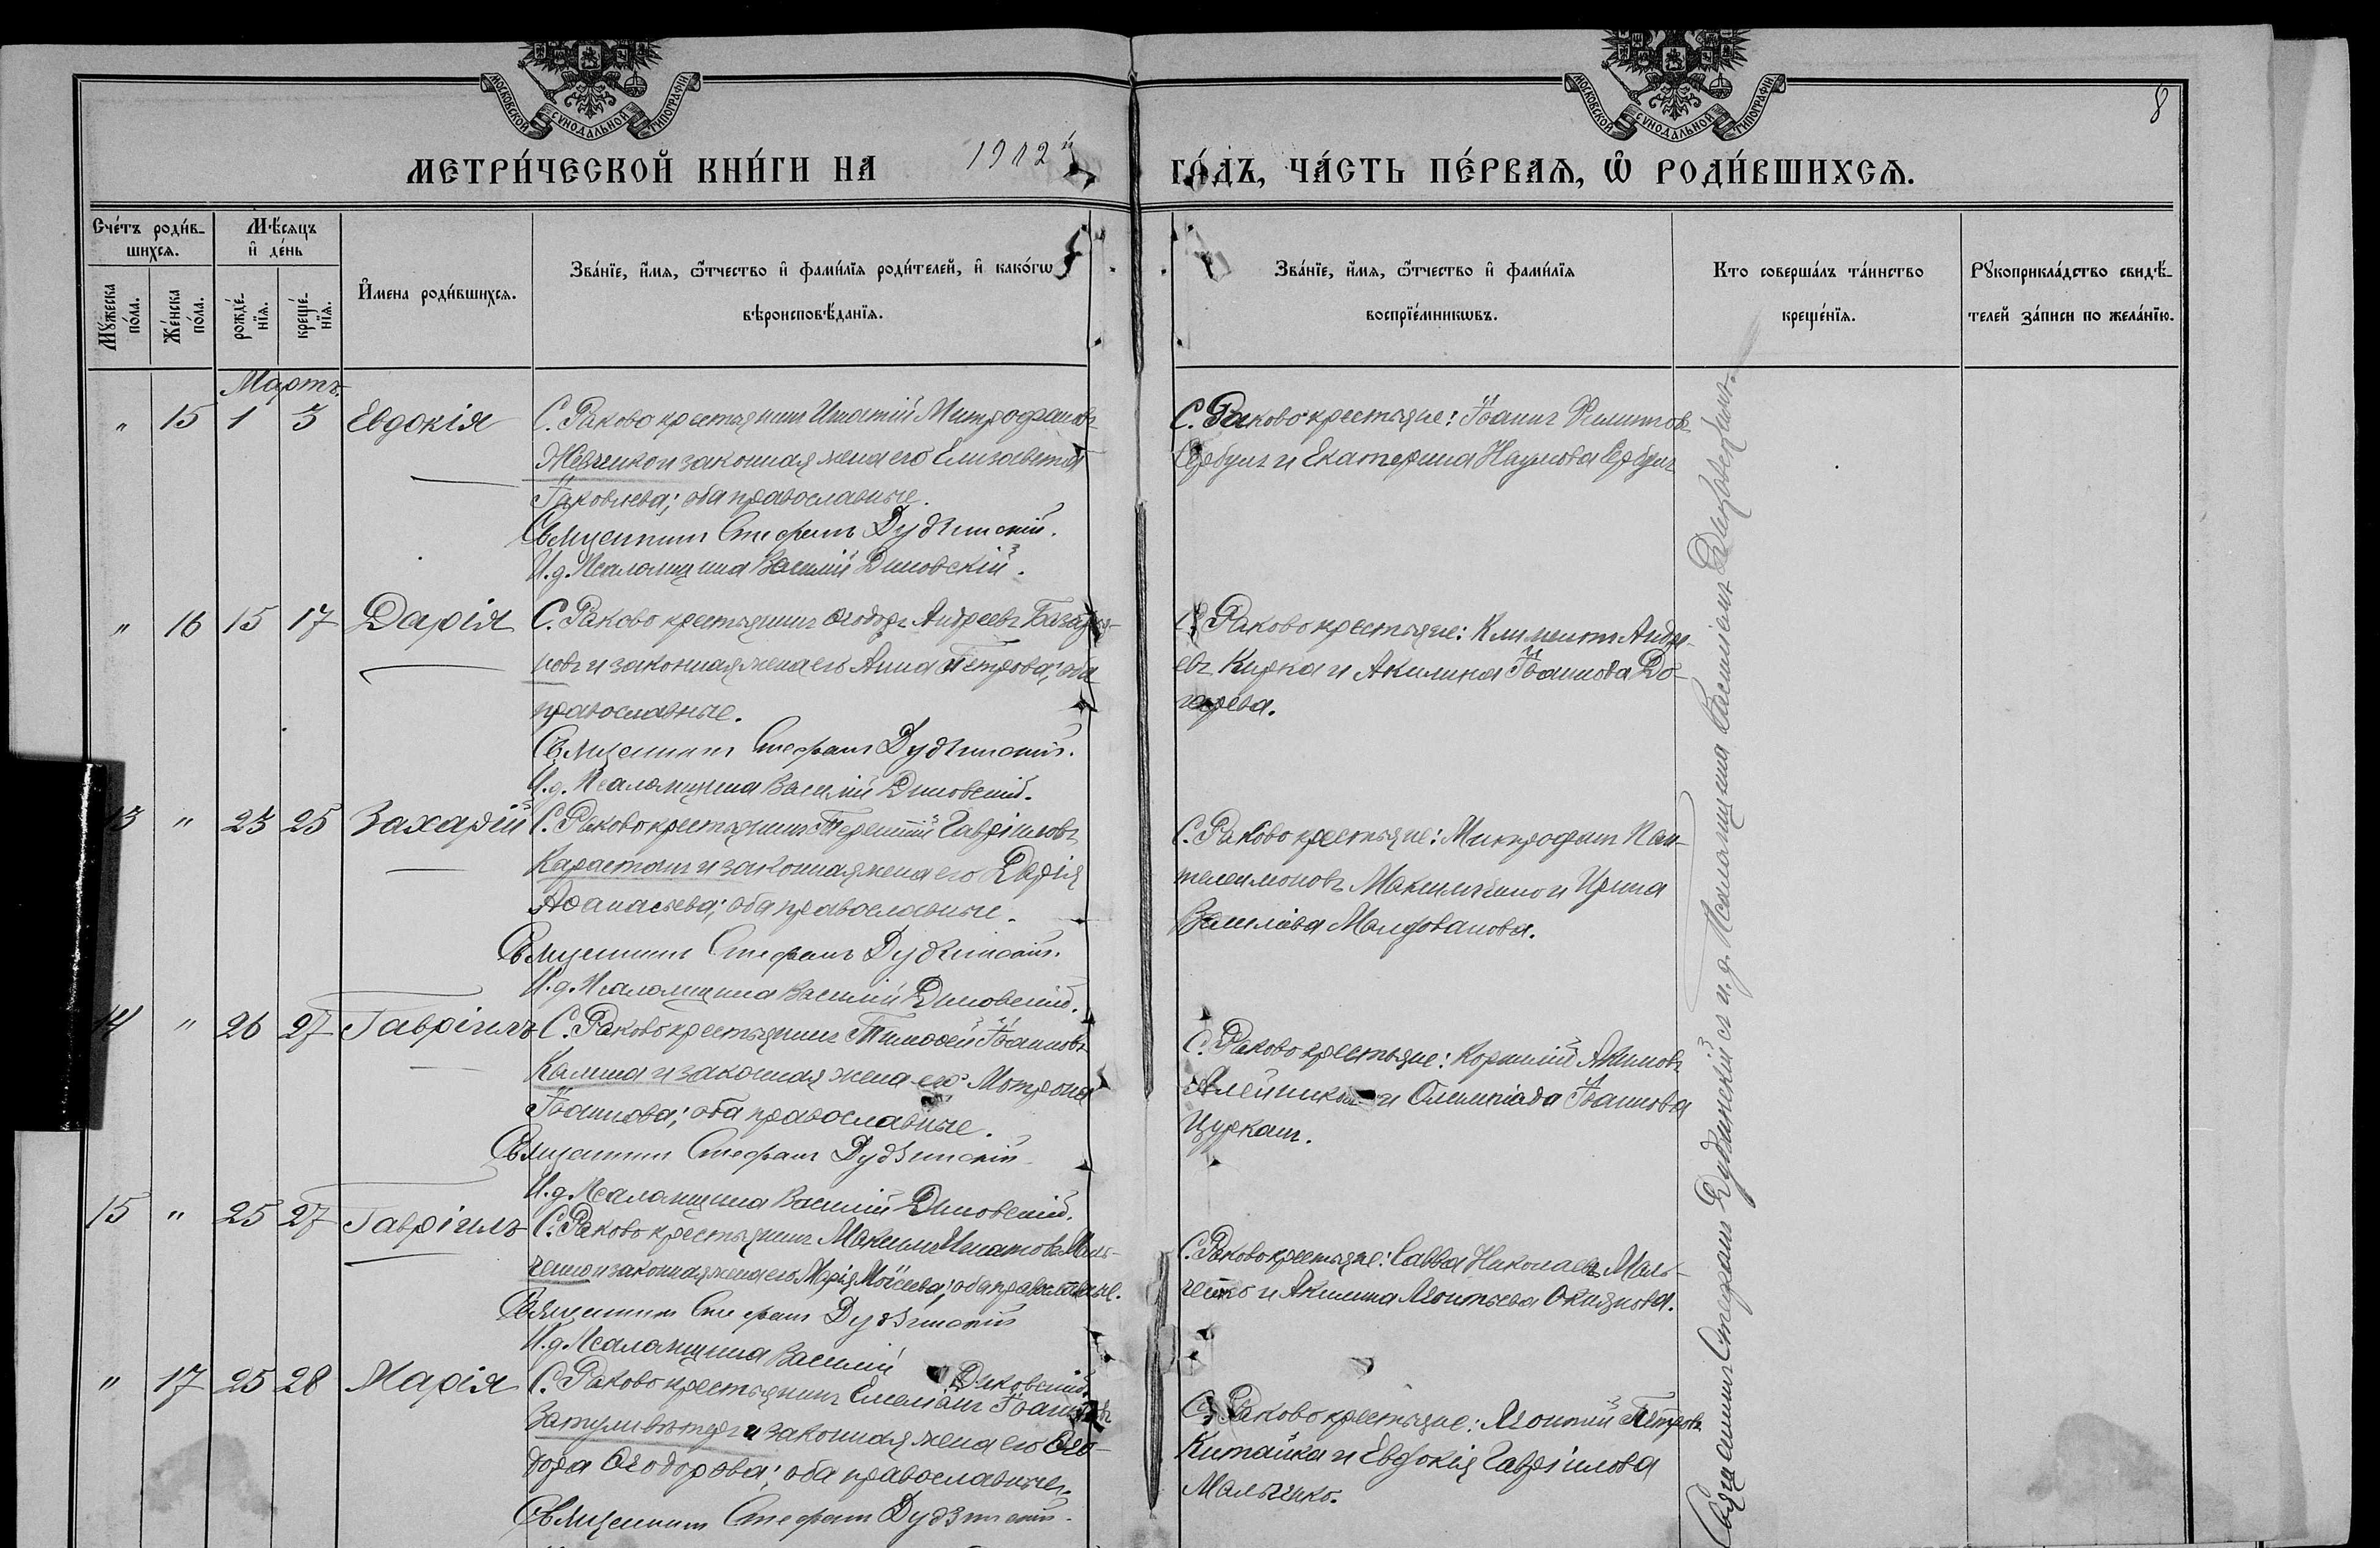 МОСКОВСКОЙ СУНОДАЛЬНОЙ ТИПОГРАФІИ
МОСКОВСКОЙ СУНОДАЛЬНОЙ ТИПОГРАФІИ
8
МЕТРИ́ЧЕСКОЙ КНИ́ГИ НА 1912й
ГО́ДЪ, ЧА́СТЬ ПЕ́РВАѦ, Ѡ҆ РОДИ́ВШИХСѦ.
Сче́тъ роди́в-
шихсѧ.
Мѣ́сѧцъ
и҆ де́нь
Мꙋ́жеска
по́ла.
Же́нска
по́ла.
рожде́-
нїѧ.
креще́-
нїѧ.
И҆мена роди́вшихсѧ.
Зва́нїе, и҆́мѧ, ѻ҆́тчество и҆ фами́лїѧ роди́телей, и҆ како́гѡ
вѣроисповѣ́данїѧ.
Зва́нїе, и҆́мѧ, ѻ҆́тчество и҆ фами́лїѧ
воспрїе́мникѡвъ.
Кто соверша́лъ та́инство
креще́нїѧ.
Рꙋкоприкла́дство свидѣ́-
телей за́писи по жела́нїю.
Мартъ.
" 15 1 3 Евдокія
С. Раково крестьянинъ Игнатій Митрофановъ
Жевченко и законная жена его Елизавета
Іаковлева; оба православные.
Священникъ Стефанъ Дудзинскій.
И.д. Псаломщика Василій Диковскій.
С. Раково крестьяне: Іоаннъ Филиповъ
Сербулъ и Екатерина Наумова Сербулъ
" 16 15 17 Дарія
С. Раково крестьянинъ Ѳеодоръ Андреевъ
новъ и законная жена его Анна Петрова; оба
православные.
Священникъ Стефанъ Дудзинскій.
И.д. Псаломщика Василій Диковскій.
С. Раково крестьяне: Климентъ Андре-
евъ Кирка и Акилина Іоаннова Бо-
гарева.
13 " 23 25 Захарій
С. Раково крестьянинъ Терентій Гавріиловъ
Карастанъ и законная жена его Дарія
Аѳанасьева; оба православные.
Священникъ Стефанъ Дудзинскій.
И.д. Псаломщика Василій Диковскій.
С. Раково крестьяне: Митрофанъ Пан-
телеимоновъ Максимченко и Ирина
Василіева Молдованова.
14 " 26 27 Гавріилъ
С. Раково крестьянинъ Тимоѳей Іоанновъ
Калина и законная жена его Мотрона
Іоаннова; оба православные.
Священникъ Стефанъ Дудзинскій
И.д. Псаломщика Василій Диковскій.
С. Раково крестьяне: Корнилій Акимовъ
Алейников и Олимпіада Іоаннова
Цурканъ.
15 " 25 27 Гавріилъ
С. Раково крестьянинъ Максимъ Игнатовъ Маль-
ченко и законная жена его Марія Моисеева; оба православные.
Священникъ Стефанъ Дудзинскій
И.д. Псаломщика Василій Диковскій.
С. Раково крестьяне: Савва Николаевъ Маль-
ченко и Акилина Леонтьева Окиянова.
" 17 25 28 Марія
С. Раково крестьянинъ Емеліанъ Іоанновъ
Затуливѣтеръ и законная жена его Ѳео-
дора Ѳеодорова; оба православные.
Священникъ Стефанъ Дудзинскій.
С. Раково крестьяне: Леонтій Петровъ
Китайка и Евдокія Гавріилова
Мальченко.
Священникъ Стефанъ Дудзинскій съ и.д. Псаломщика Василіемъ Диковскимъ.